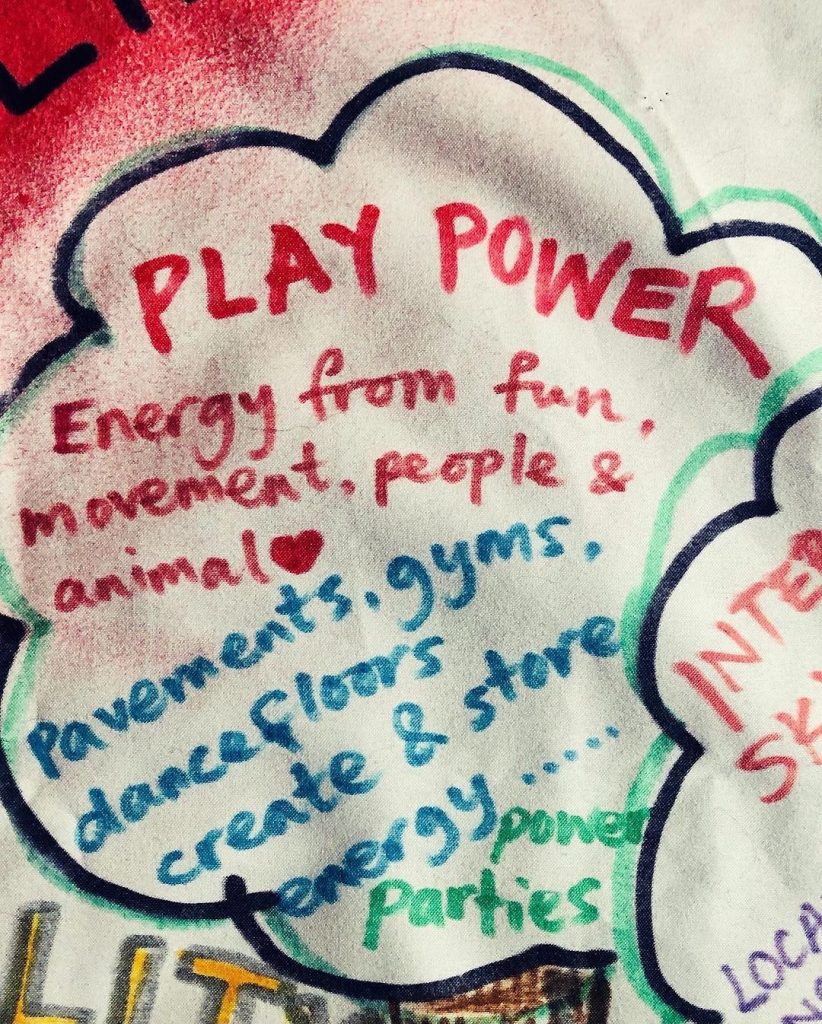 PLAY POWER
Energy from fun,
movement, people &
animal♥
Pavements, gyms,
dancefloors
create & store
energy.....
power
parties
LIT